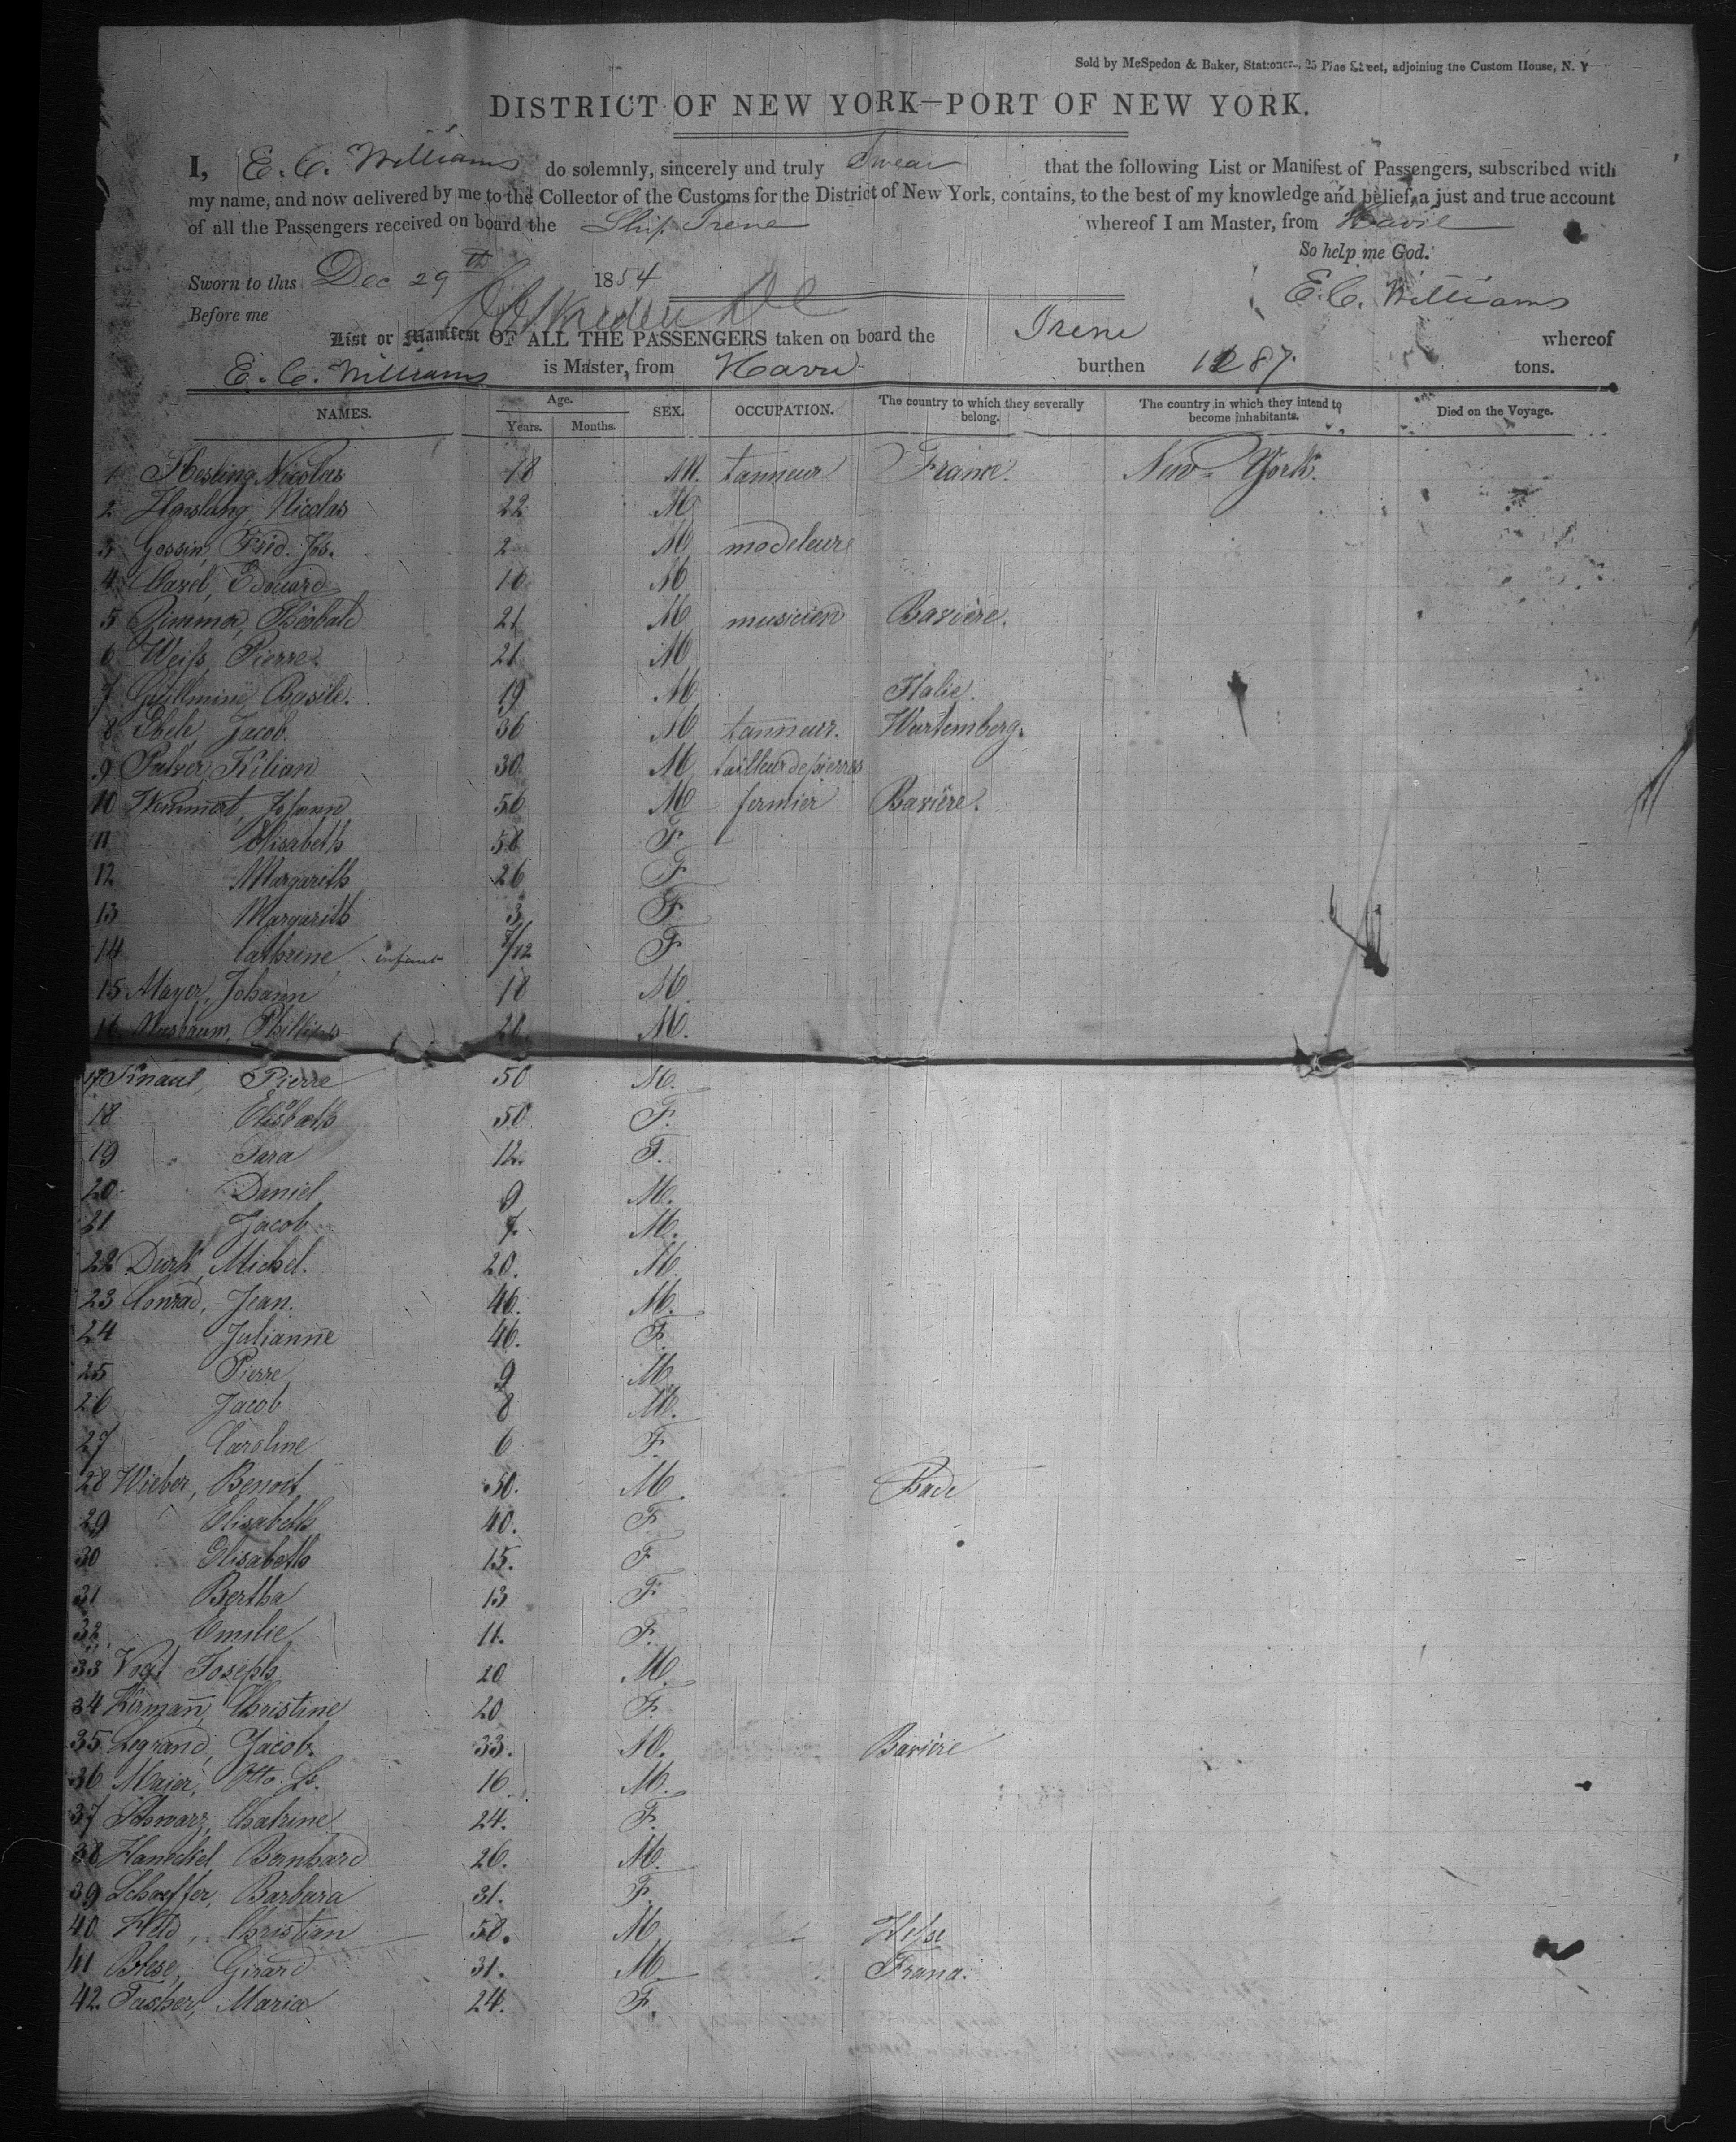 Sold by McSpedon & Baker, Stationers, 25 Pine Street, adjoining the Custom House, N. Y
DISTRICT OF NEW YORK—PORT OF NEW YORK.
I, E. C. Williams do solemnly, sincerely and truly Swear that the following List or Manifest of Passengers, subscribed with
my name, and now delivered by me to the Collector of the Customs for the District of New York, contains, to the best of my knowledge and belief, a just and true account
of all the Passengers received on board the Ship Irene whereof I am Master, from Havre
So help me God.
Sworn to this Dec 29th 1854 E. C. Williams
Before me
List or Manifest OF ALL THE PASSENGERS taken on board the Irene whereof
E. C. Williams is Master, from Havre burthen 1287 tons.
NAMES. Age. Years. Months. SEX. OCCUPATION. The country to which they severally belong. The country in which they intend to become inhabitants. Died on the Voyage.
1 Nicolas 18 M. tanneur France. New-York.
2 Nicolas 22 M
3 Gossin, Fréd. Jos. 2 M modeleur
4 Edouard 16 M
5 Zimmer, Théobald 21 M musicien Bavière.
6 Weiss, Pierre. 21 M
7 Basile. 19 M Italie.
8 Jacob. 36 M tanneur. Wurtemberg.
9 Kilian 30 M tailleur de pierres
10 Johann 56 M fermier Bavière.
11 Elisabeth 58 F
12 Margarith 26 F
13 Margarith 3 F
14 Cathrine infant 7/12 F
15 Mayer, Johann 18 M.
16 Nusbaum, 21 M.
17 Knaut, Pierre 50 M.
18 50 F.
19 Sara 12. F.
20 Daniel 9 M.
21 Jacob 7. M.
22 Michel. 20. M.
23 Conrad, Jean. 46. M.
24 Julianne 46. F.
25 Pierre 9 M.
26 Jacob 8 M.
27 Caroline 6 F.
28 Wieber, Benoit 50. M Bade
29 Elisabeth 40. F
30 Elisabeth 15. F
31 Bertha 13 F
32 Emilie 11. F.
33 Vogt Joseph 20 M.
34 Christine 20 F.
35 Legrand, Jacob. 33. M. Bavière
36 Maier, Otto 16 M.
37 Schwarz, Chatrine 24. F.
38 Bernhard 26. M.
39 Schaeffer, Barbara 31. F.
40 Held, Christian 58. M Hesse
41 Girard 31. M
42. Maria 24. F.